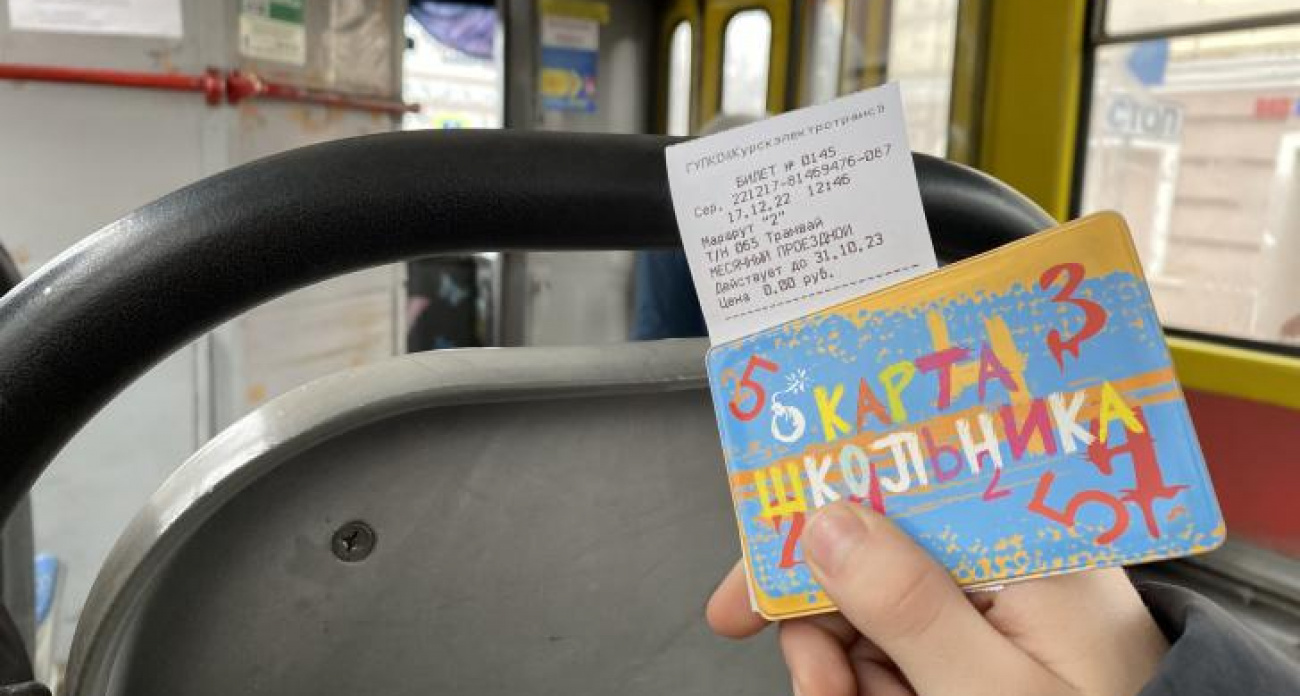 ГУПКО«Курскэлектротранс»
БИЛЕТ № 0145
Сер. 221217-81469476-087
17.12.22 12:46
Маршрут "2"
Т/Н 065 Трамвай
МЕСЯЧНЫЙ ПРОЕЗДНОЙ
Действует до 31.10.23
Цена 0.00 руб.
стоп
3
5
КАРТА
ШКОЛЬНИКА
2
5